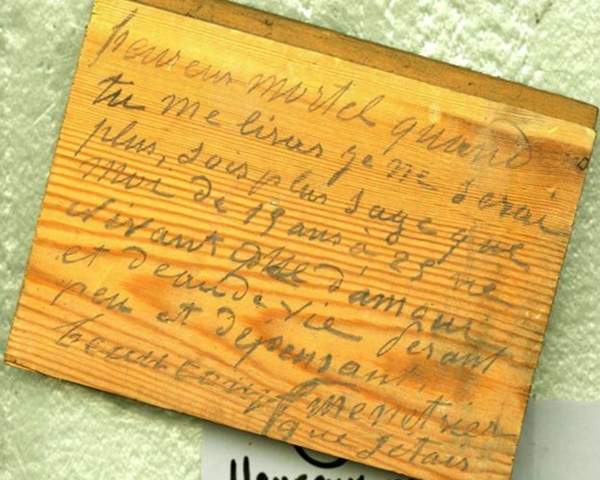 heureux mortel quand
tu me liras je ne serai
plus, sois plus sage que
moi de 19 ans à 25 ne
vivant que d'amour
et d'eau de vie ferant
peu et dépensant
beaucoup menetrier
que jetais